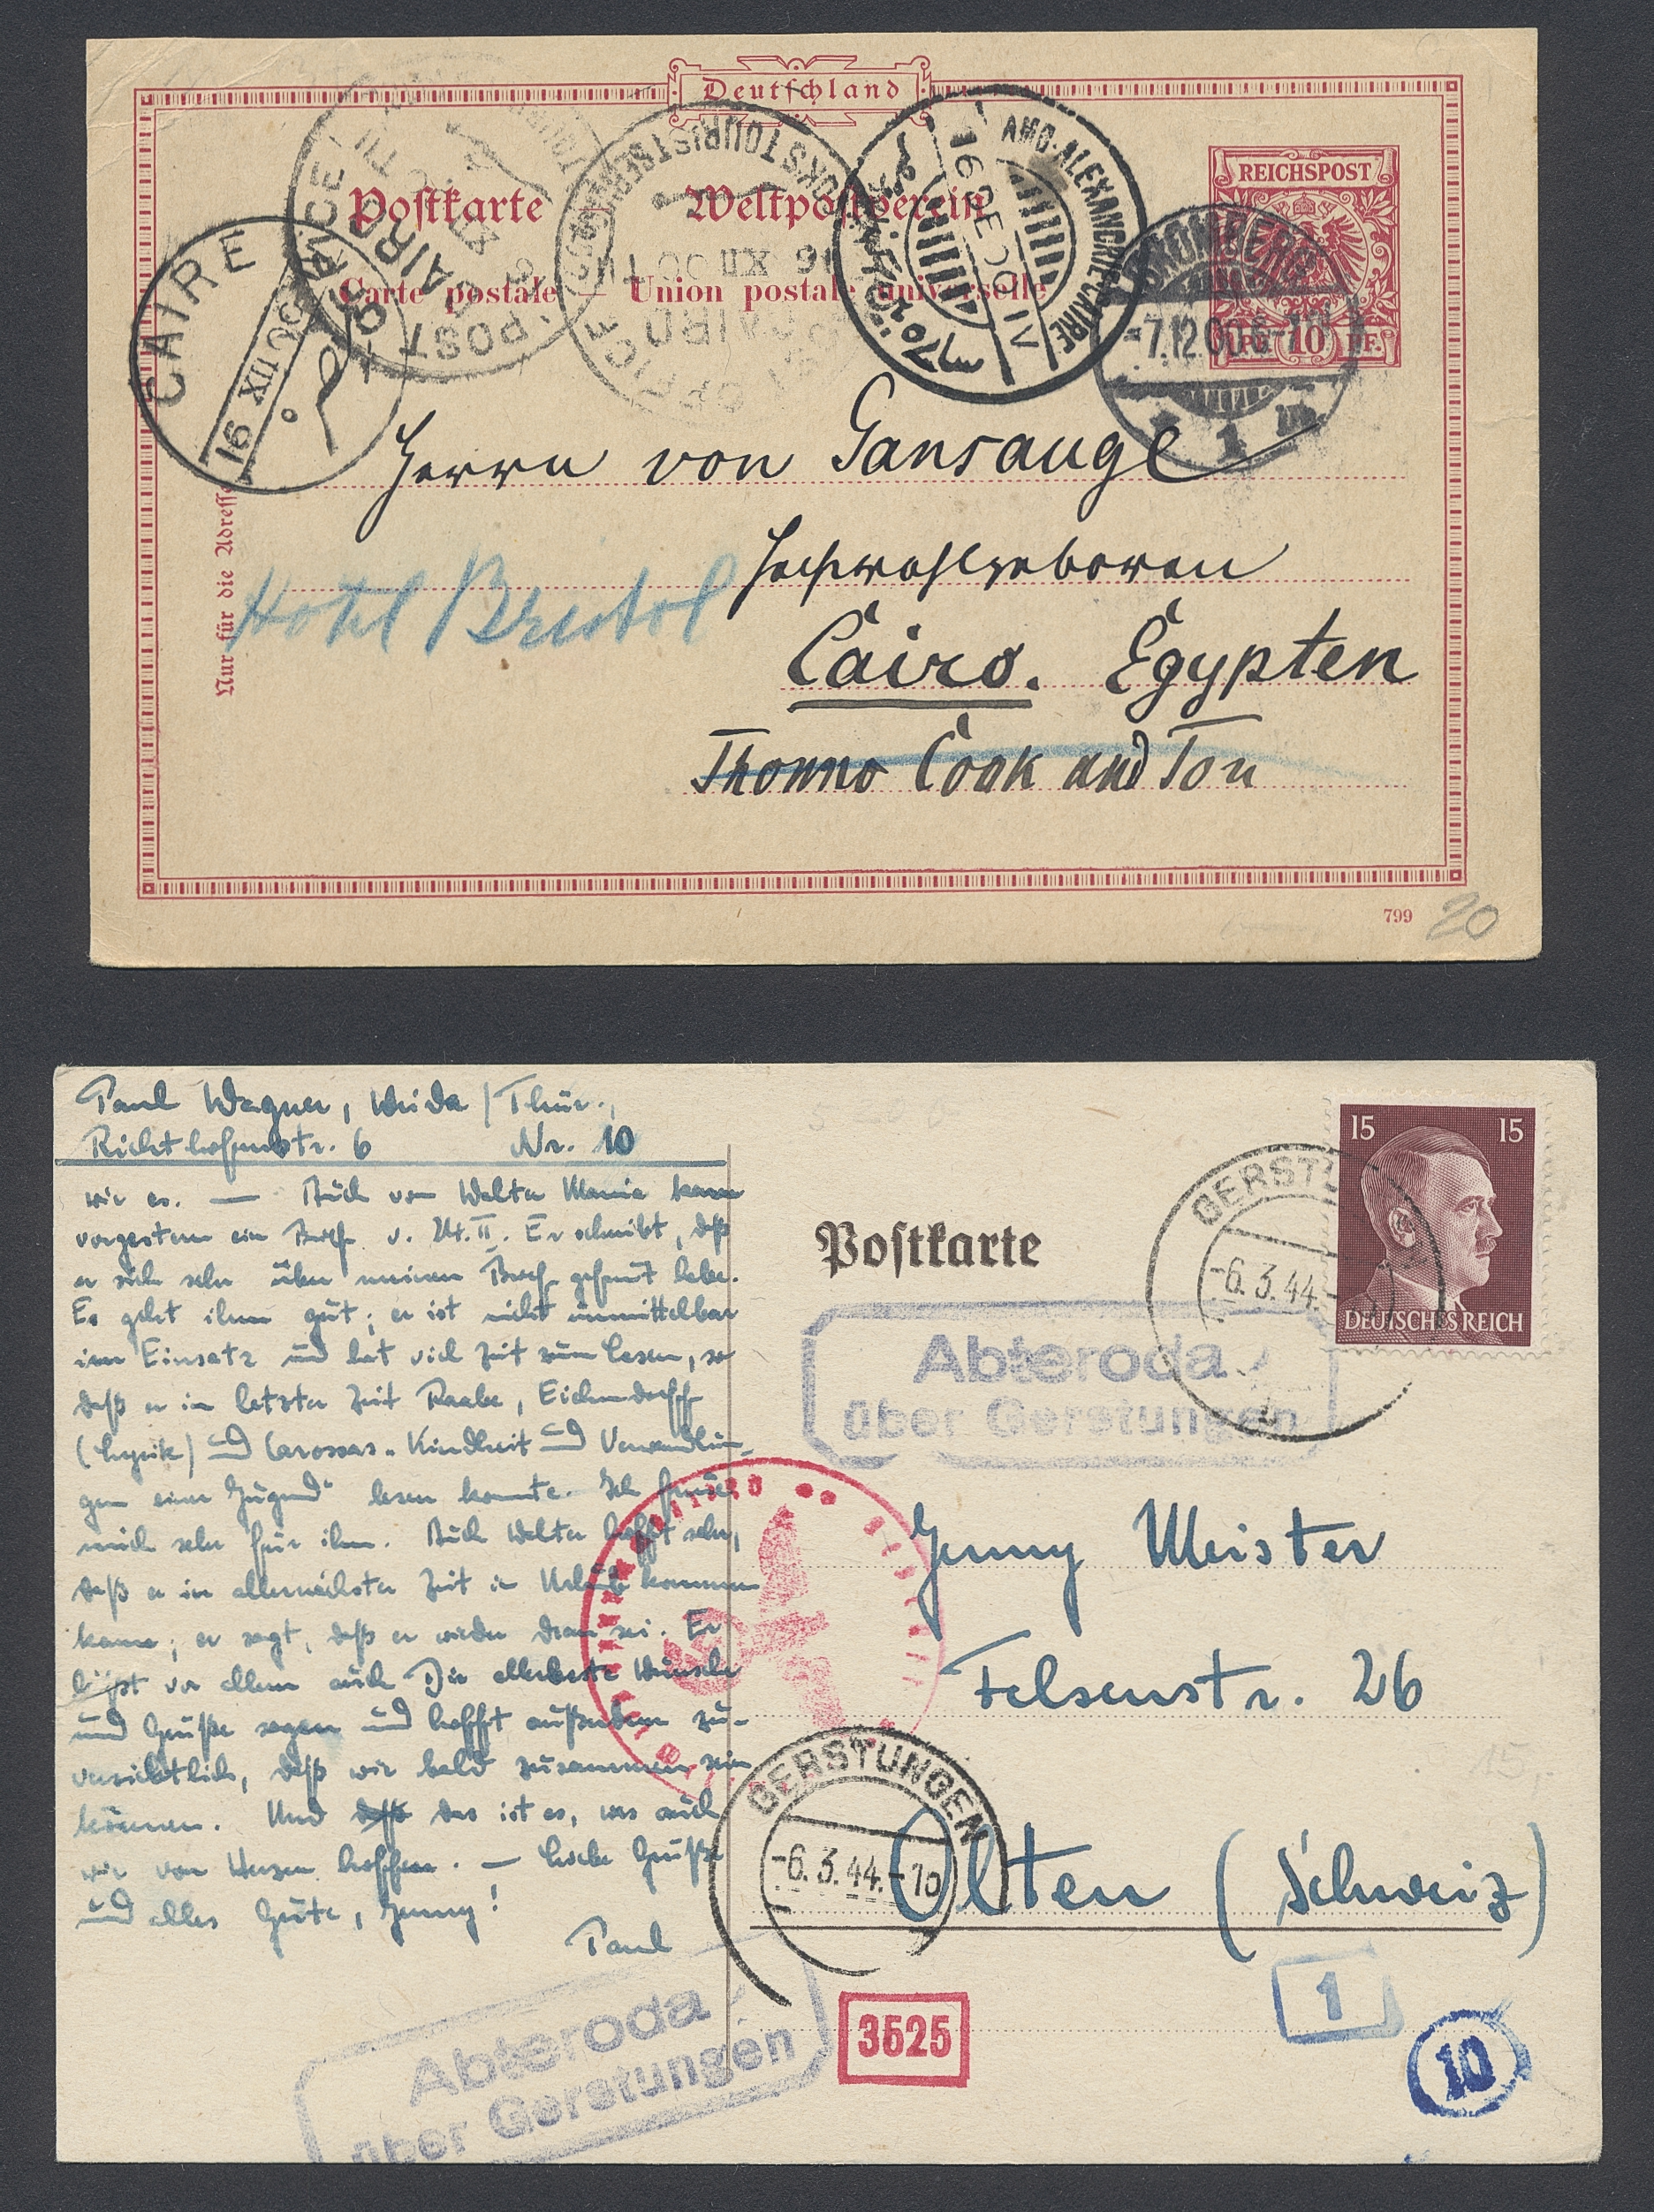 Deutschland
Postkarte Weltpostverein
Carte postale — Union postale universelle
REICHSPOST
10 PF.
CAIRE
16 XII 00
POST OFFICE
CAIRO
COOKS TOURIST SERVICE
POST OFFICE
CAIRO
16 XII 00
AMB-ALEXANDRIE-CAIRE
16 DE 00 IV
BROMBERG
-7.12.00.6-7N
1
Nur für die Adresse
Herrn von Gansauge
Hochwohlgeboren
Hotel Bristol
Cairo. Egypten
Cook and Son
799
20
Paul Wagner, Weida / Thür.,
Richthofenstr. 6 Nr. 10
wir es. — Auch von Walter kam
vorgestern ein Brief v. 24. II. Er schreibt, daß
er sich sehr über meinen Brief gefreut habe.
Es geht ihm gut; er ist nicht unmittelbar
im Einsatz und hat viel Zeit zum Lesen, so
daß er in letzter Zeit Raabe, Eichendorff
(Lyrik) und Carossas „Kindheit und Verwandlun-
gen einer Jugend“ lesen konnte. Ich freue
mich sehr für ihn. Auch Walter hofft sehr,
daß er in allernächster Zeit in Urlaub kommen
kann; er sagt, daß er wieder dran sei. Er
läßt vor allem auch Dir allerbeste Wünsche
und Grüße sagen und hofft außerdem zu-
versichtlich, daß wir bald zusammen sein
können. Und daß das ist es, was auch
wir von Herzen hoffen. — Liebe Grüße
und alles Gute, Jenny!
Paul
Postkarte
15 15
DEUTSCHES REICH
GERSTU
-6.3.44.-
Abteroda
über Gerstungen
Jenny Meister
Felsenstr. 26
Olten (Schweiz)
GERSTUNGEN
-6.3.44.-10
Abteroda
über Gerstungen
3525
1
10
15,-